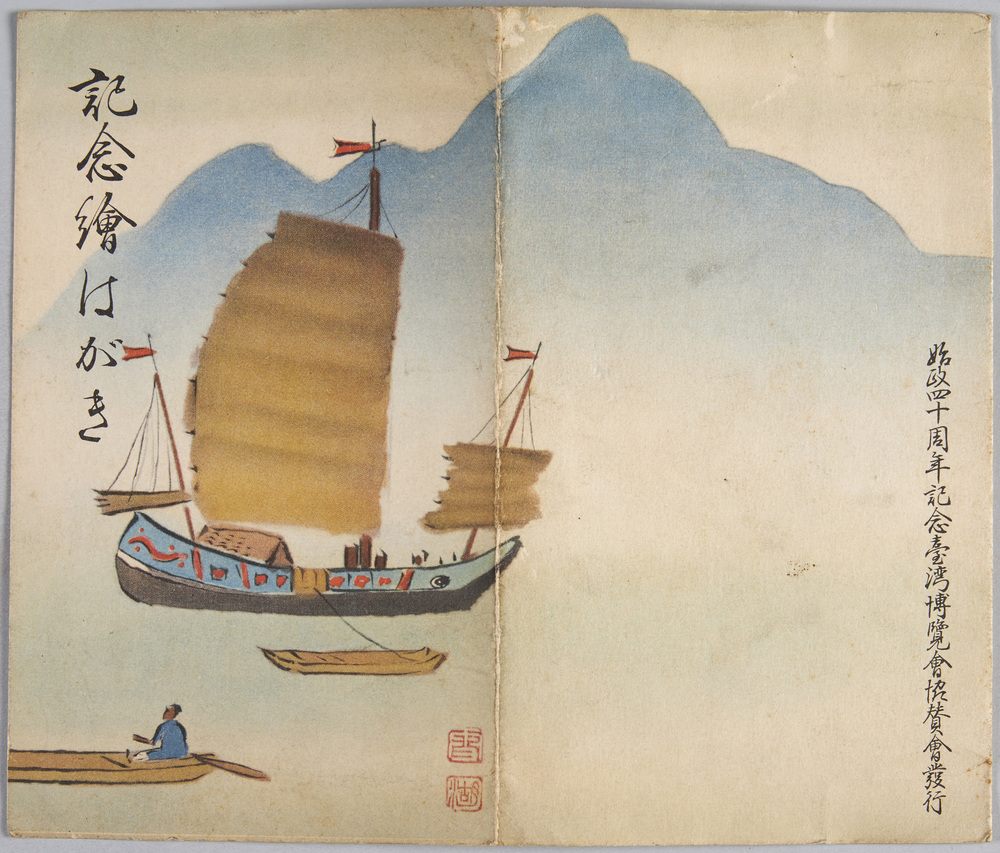 記念繪はがき
始政四十周年記念臺湾博覽會協賛會發行